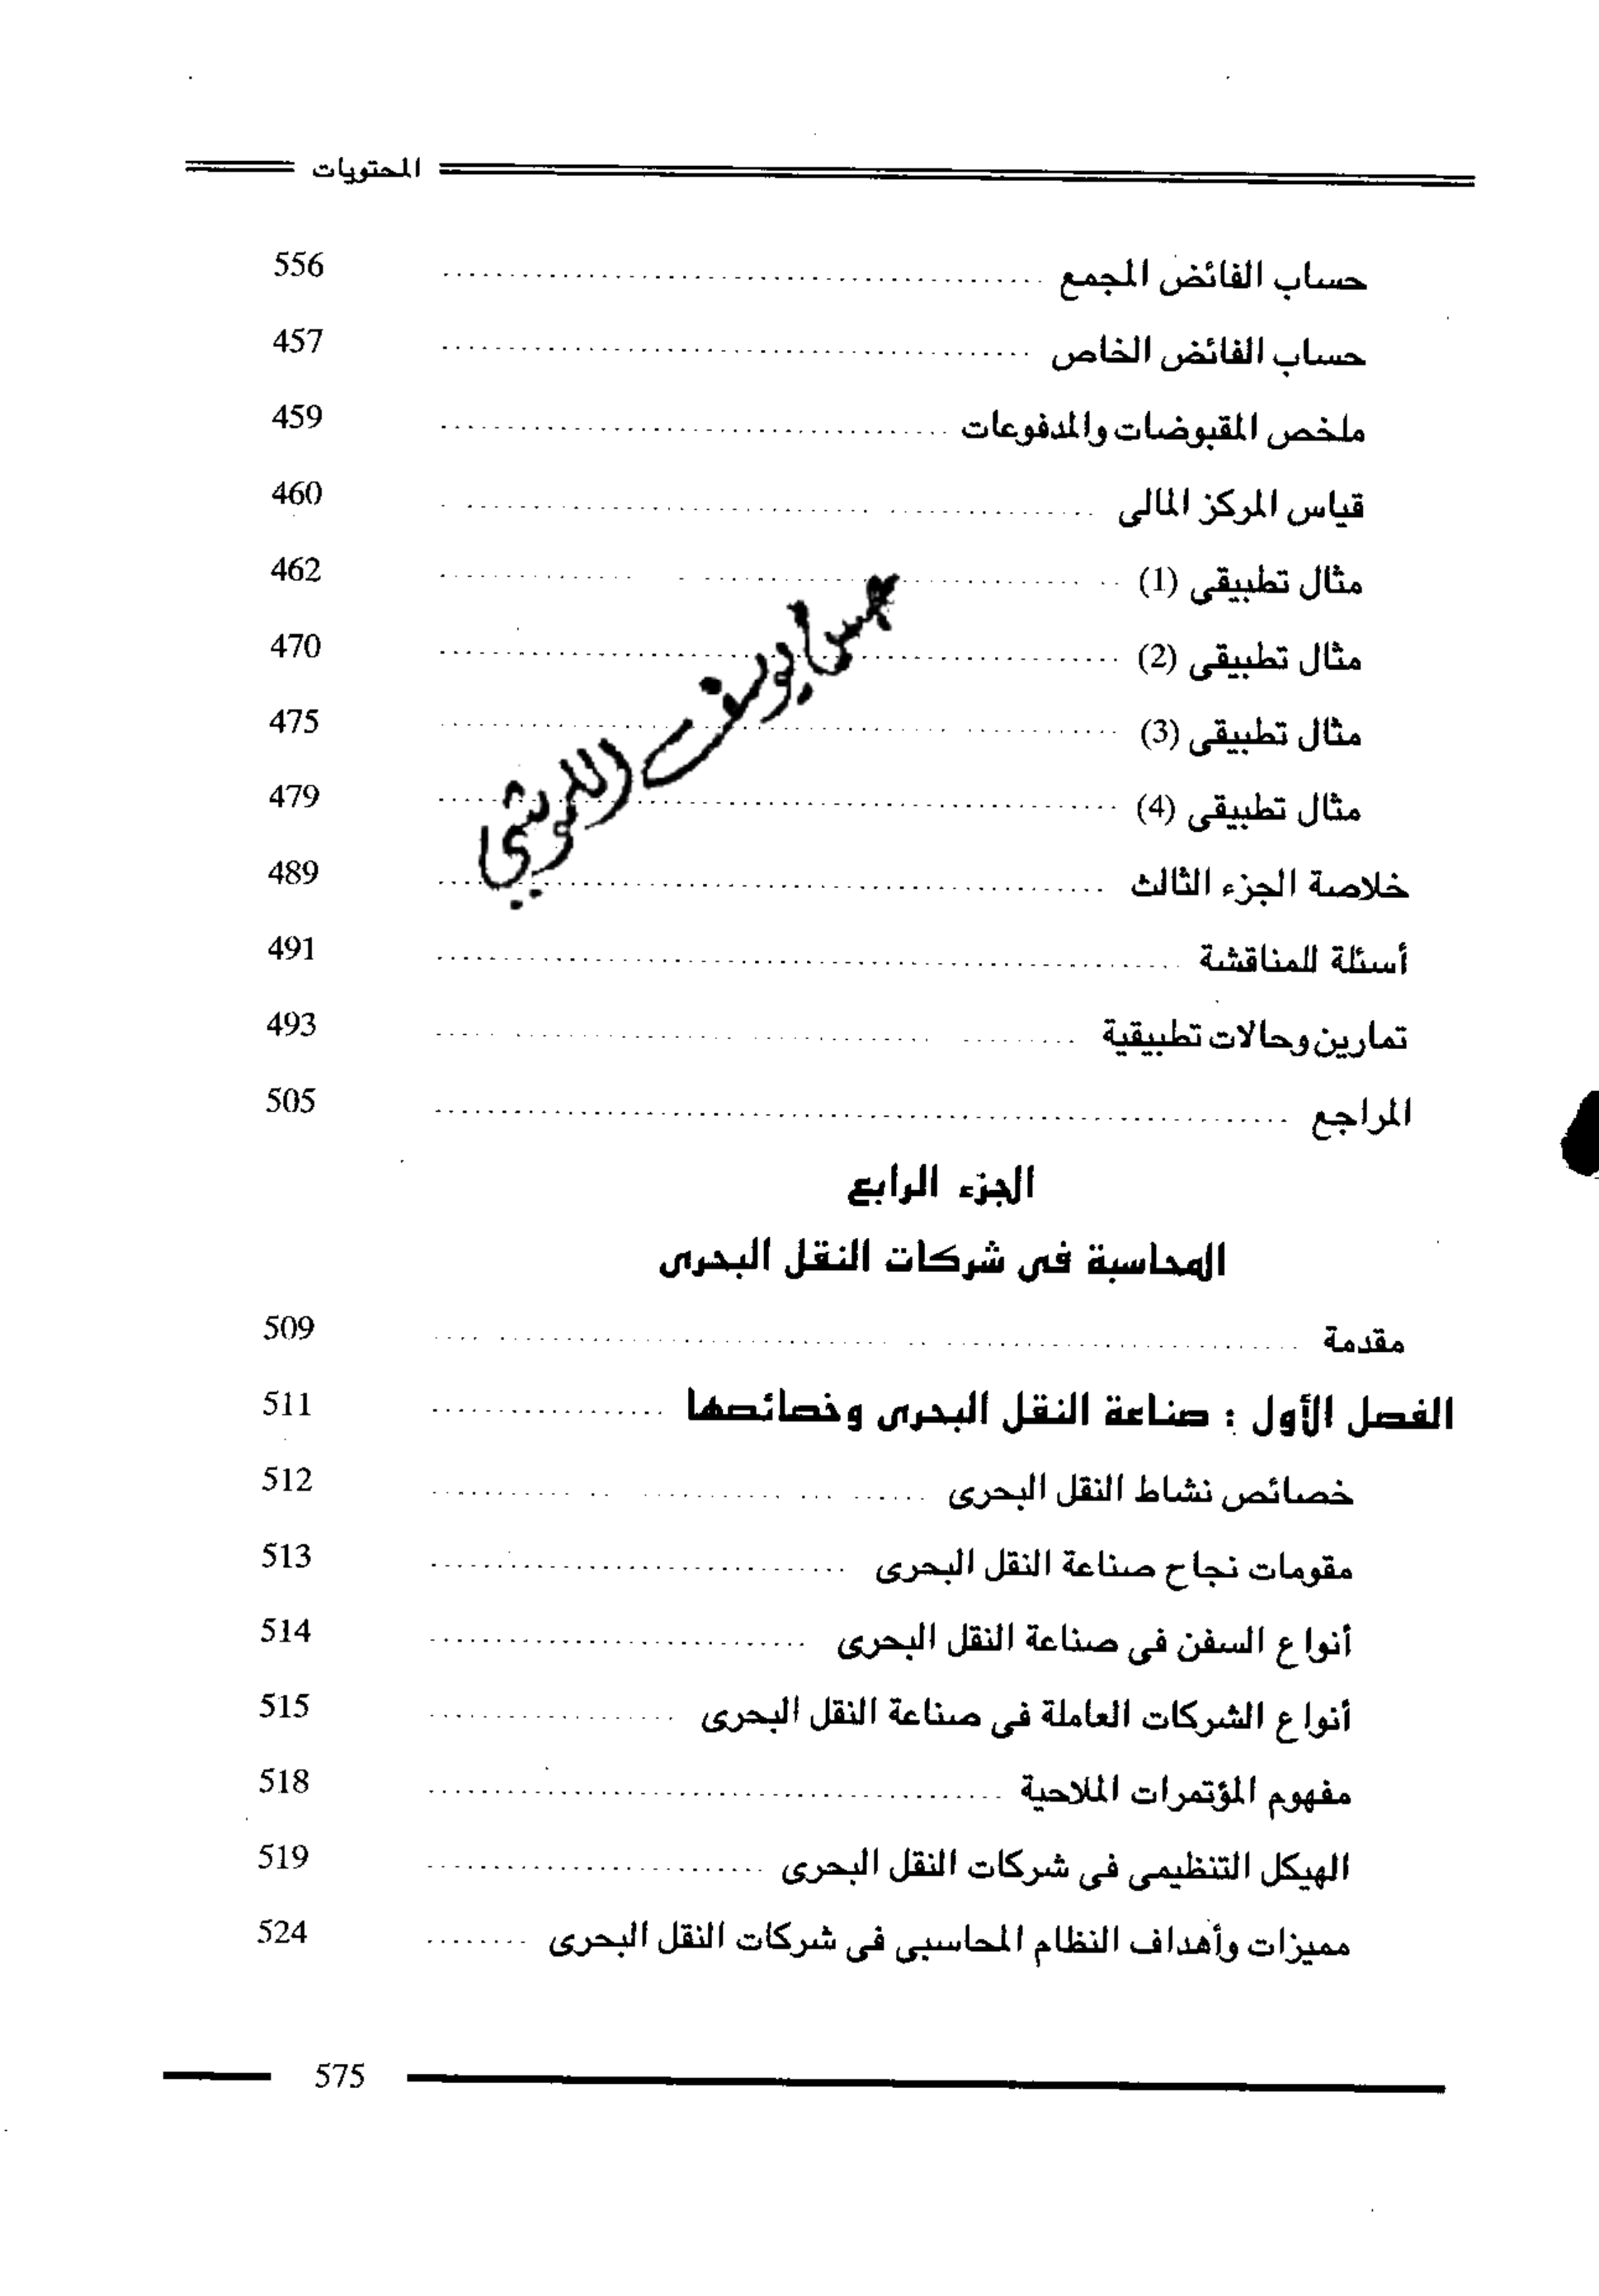 المحتويات
حساب الفائض المجمع 556
حساب الفائض الخاص 457
ملخص المقبوضات والمدفوعات 459
قياس المركز المالى 460
مثال تطبيقى (1) 462
مثال تطبيقى (2) 470
مثال تطبيقى (3) 475
مثال تطبيقى (4) 479
خلاصة الجزء الثالث 489
أسئلة للمناقشة 491
تمارين وحالات تطبيقية 493
المراجع 505
الجزء الرابع
المحاسبة فى شركات النقل البحرى
مقدمة 509
الفصل الأول : صناعة النقل البحرى وخصائصها 511
خصائص نشاط النقل البحرى 512
مقومات نجاح صناعة النقل البحرى 513
أنواع السفن فى صناعة النقل البحرى 514
أنواع الشركات العاملة فى صناعة النقل البحرى 515
مفهوم المؤتمرات الملاحية 518
الهيكل التنظيمى فى شركات النقل البحرى 519
مميزات وأهداف النظام المحاسبى فى شركات النقل البحرى 524
575